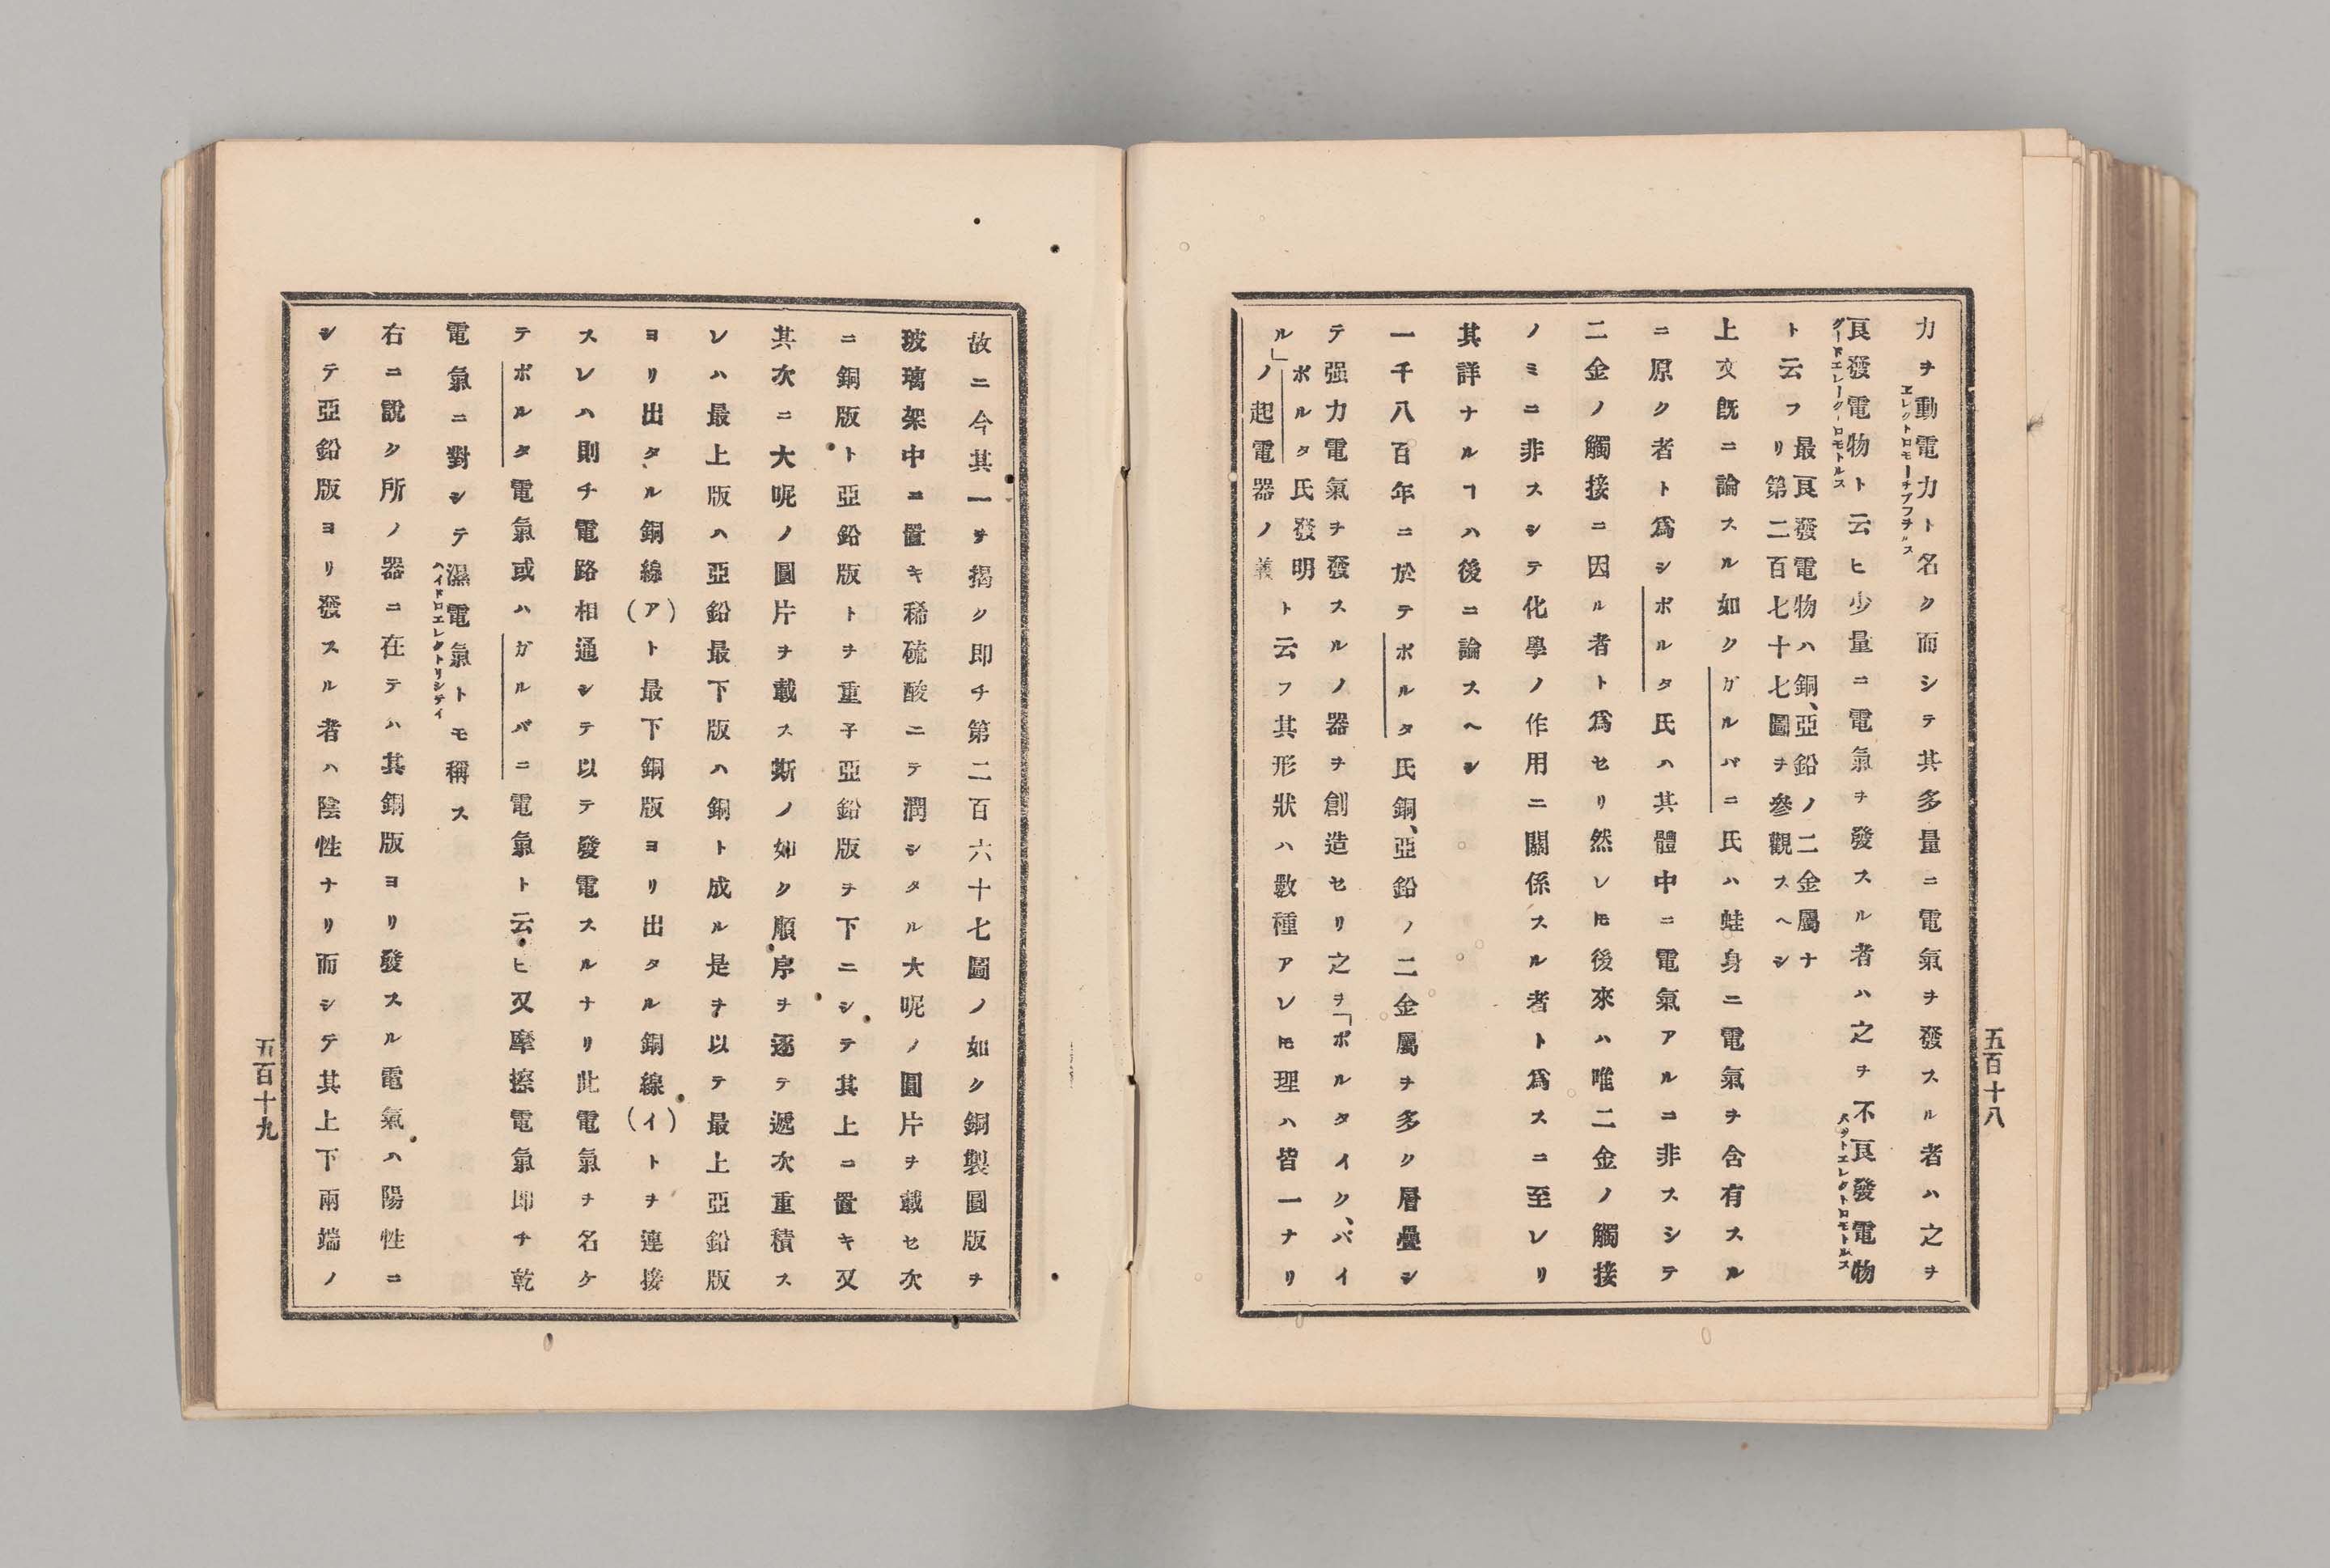 五百十八
力ヲ動電力ト名ク而シテ其多量ニ電氣ヲ發スル者ハ之ヲ
エレクトロモーチフフヲルス
良發電物ト云ヒ少量ニ電氣ヲ發スル者ハ之ヲ不良發電物
グードエレークーロモトルス
スラトエレクトロモトルス
ト云フ
最良發電物ハ銅、亞鉛ノ二金屬ナ
リ第二百七十七圖ヲ參觀スヘシ
上文旣ニ論スル如クガルバニ氏ハ蛙身ニ電氣ヲ含有スル
ニ原ク者ト爲シボルタ氏ハ其體中ニ電氣アルヿ非スシテ
二金ノ觸接ニ因ル者ト爲セリ然レ𪜈後來ハ唯二金ノ觸接
ノミニ非スシテ化學ノ作用ニ關係スル者ト爲スニ至レリ
其詳ナルヿハ後ニ論スヘシ
一千八百年ニ於テボルタ氏銅、亞鉛ノ二金屬ヲ多ク層疊シ
テ强力電氣ヲ發スルノ器ヲ創造セリ之ヲ「ボルタイク、パイ
ル」
ボルタ氏發明
ノ起電器ノ義
ト云フ其形狀ハ數種アレ𪜈理ハ皆一ナリ
故ニ今其一ヲ揭ク即チ第二百六十七圖ノ如ク銅製圓版ヲ
玻璃架中ニ置キ稀硫酸ニテ潤シタル大呢ノ圓片ヲ載セ次
ニ銅版ト亞鉛版トヲ重子亞鉛版ヲ下ニシテ其上ニ置キ又
其次ニ大呢ノ圓片ヲ載ス斯ノ如ク順序ヲ逐テ遞次重積ス
レハ最上版ハ亞鉛最下版ハ銅ト成ル是ヲ以テ最上亞鉛版
ヨリ出タル銅線(ア)ト最下銅版ヨリ出タル銅線(イ)トヲ連接
スレハ則チ電路相通シテ以テ發電スルナリ此電氣ヲ名ケ
テボルタ電氣或ハガルバニ電氣ト云ヒ又摩擦電氣即チ乾
電氣ニ對シテ濕電氣トモ稱ス
ハイドロエレクトリシテイ
右ニ說ク所ノ器ニ在テハ其銅版ヨリ發スル電氣ハ陽性ニ
シテ亞鉛版ヨリ發スル者ハ陰性ナリ而シテ其上下兩端ノ
五百十九